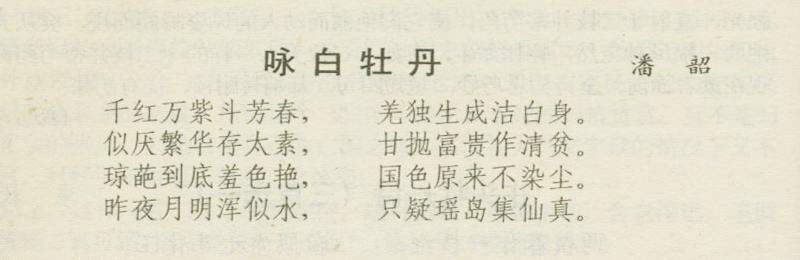 咏白牡丹 潘韶
千红万紫斗芳春， 羌独生成洁白身。
似厌繁华存太素， 甘抛富贵作清贫。
琼葩到底羞色艳， 国色原来不染尘。
昨夜月明浑似水， 只疑瑶岛集仙真。